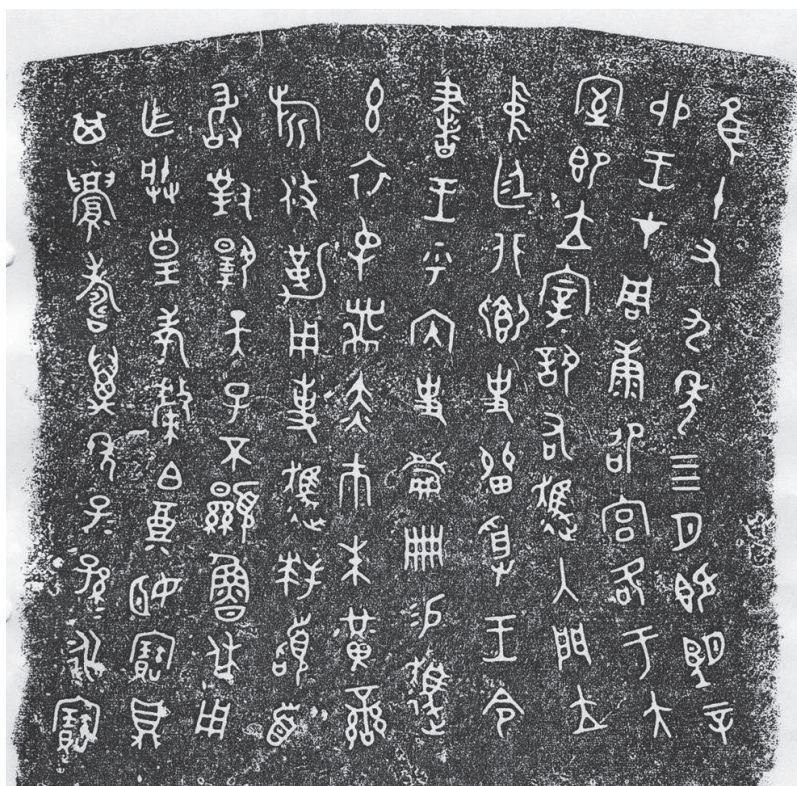 隹十又九年四月既望辛
卯王才周康卲宮各于大
室即立宰訊右趩入門立
中廷北鄉史留受王令
書王乎內史冊易趩
玄衣屯黹赤巿朱黃䜌
旂攸勒用事趩拜𩒨首
敢對揚天子不顯魯休用
乍朕皇考斄白奠姬寶鼎
其眉壽萬年子子孫孫永寶